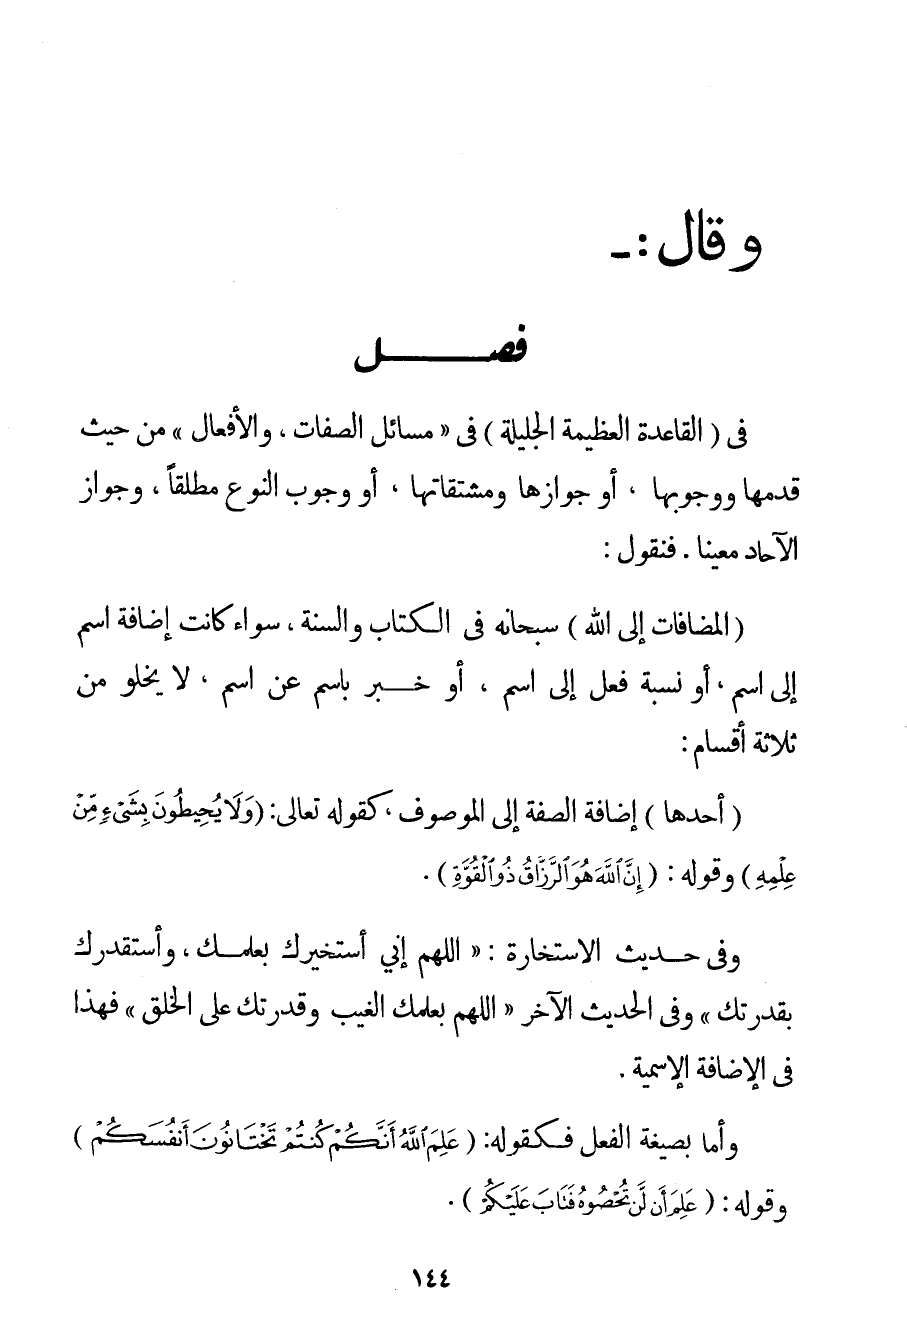 وقال :ـ
فصــــــل
فى ( القاعدة العظيمة الجليلة ) فى « مسائل الصفات ، والأفعال » من حيث
قدمها ووجوبها ، أو جوازها ومشتقاتها ، أو وجوب النوع مطلقاً ، وجواز
الآحاد معينا . فنقول :
( المضافات إلى الله ) سبحانه فى الكتاب والسنة ، سواء كانت إضافة اسم
إلى اسم ، أو نسبة فعل إلى اسم ، أو خـــبر باسم عن اسم ، لا يخلو من
ثلاثة أقسام :
( أحدها ) إضافة الصفة إلى الموصوف ، كقوله تعالى: (وَلَا يُحِيطُونَ بِشَىْءٍ مِّنْ
عِلْمِهِ ) وقوله : ( إِنَّ ٱللَّهَ هُوَ ٱلرَّزَّاقُ ذُو ٱلْقُوَّةِ ) .
وفى حــديث الاستخارة : « اللهم إني أستخيرك بعلمـك ، وأستقدرك
بقدرتك » وفى الحديث الآخر « اللهم بعلمك الغيب وقدرتك على الخلق » فهذا
فى الإضافة الإسمية .
وأما بصيغة الفعل فـكقوله: ( عَلِمَ ٱللَّهُ أَنَّكُمْ كُنتُمْ تَخْتَانُونَ أَنفُسَكُمْ )
وقوله : ( عَلِمَ أَن لَّن تُحْصُوهُ فَتَابَ عَلَيْكُمْ ) .
١٤٤